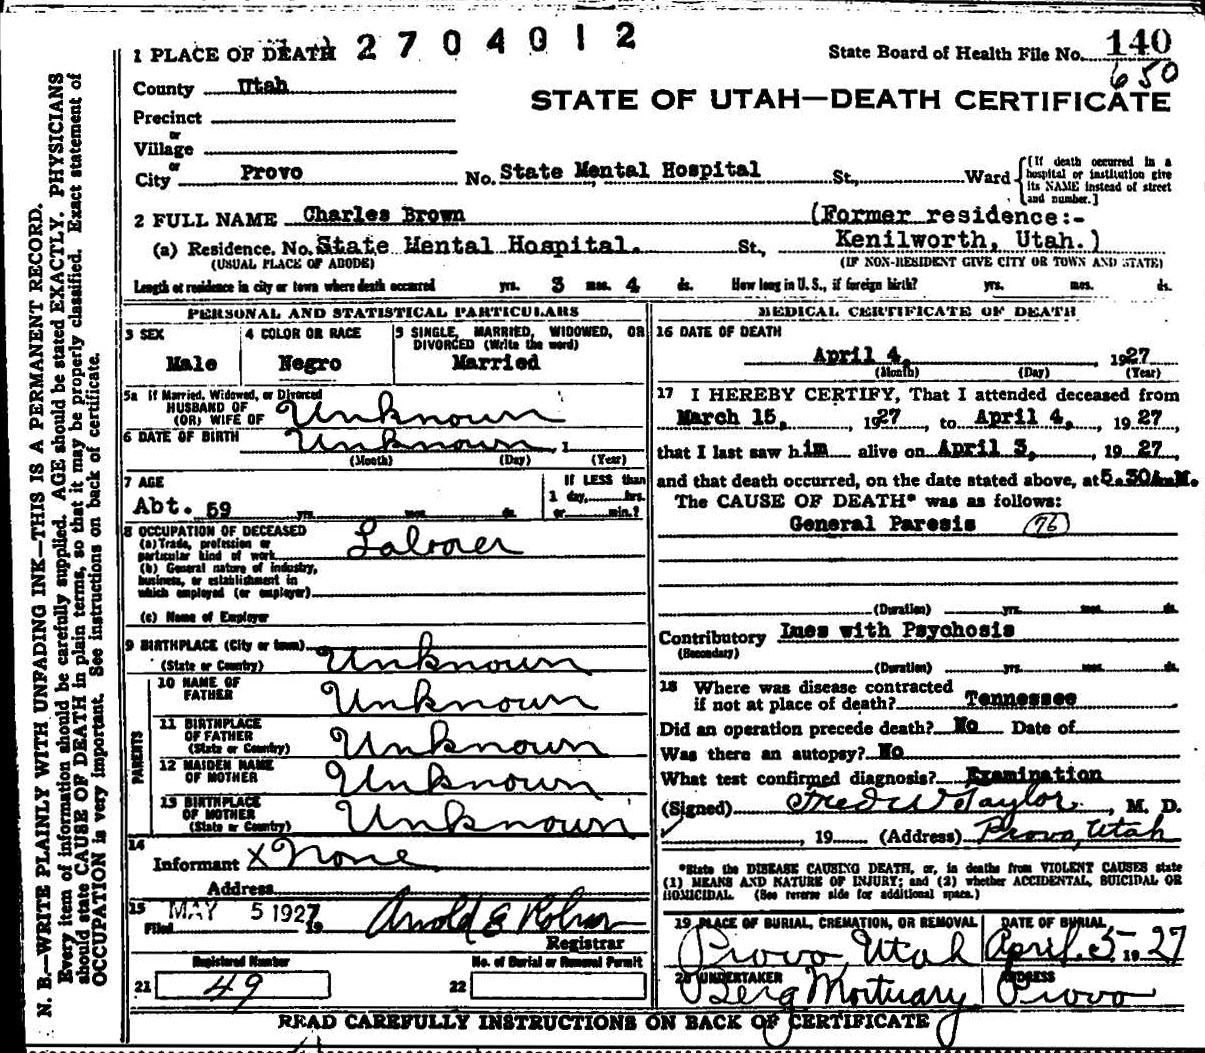 1 PLACE OF DEATH 2704012
State Board of Health File No. 140
650
County Utah
STATE OF UTAH—DEATH CERTIFICATE
Precinct
or
Village
or
City Provo No. State Mental Hospital St., Ward
{[If death occurred in a
hospital or institution give
its NAME instead of street
and number.]
2 FULL NAME Charles Brown (Former residence:-
(a) Residence. No. State Mental Hospital. St., Kenilworth, Utah.)
(USUAL PLACE OF ABODE) (IF NON-RESIDENT GIVE CITY OR TOWN AND STATE)
Length of residence in city or town where death occurred yrs. 3 mos. 4 ds. How long in U. S., if foreign birth? yrs. mos. ds.
PERSONAL AND STATISTICAL PARTICULARS
3 SEX
Male
4 COLOR OR RACE
Negro
5 SINGLE, MARRIED, WIDOWED, OR
DIVORCED (Write the word)
Married
5a If Married, Widowed, or Divorced
HUSBAND OF
(OR) WIFE OF Unknown
6 DATE OF BIRTH Unknown, 1
(Month) (Day) (Year)
7 AGE
Abt. 59 yrs. mos. ds.
If LESS than
1 day, hrs.
or min.?
8 OCCUPATION OF DECEASED
(a) Trade, profession or
particular kind of work Laborer
(b) General nature of industry,
business, or establishment in
which employed (or employer)
(c) Name of Employer
9 BIRTHPLACE (City or town)
(State or Country) Unknown
PARENTS
10 NAME OF
FATHER Unknown
11 BIRTHPLACE
OF FATHER
(State or Country) Unknown
12 MAIDEN NAME
OF MOTHER Unknown
13 BIRTHPLACE
OF MOTHER
(State or Country) Unknown
14
Informant X None
Address
15 MAY 5 1927
Filed 19
Arnold E
Registrar
Registered Number
21 49
No. of Burial or Removal Permit
22
MEDICAL CERTIFICATE OF DEATH
16 DATE OF DEATH
April 4, 1927
(Month) (Day) (Year)
17 I HEREBY CERTIFY, That I attended deceased from
March 15, 1927, to April 4, 1927,
that I last saw him alive on April 3, 1927,
and that death occurred, on the date stated above, at 5.30A.M.
The CAUSE OF DEATH* was as follows:
General Paresis (76)
(Duration) yrs. mos. ds.
Contributory Lues with Psychosis
(Secondary)
(Duration) yrs. mos. ds.
18 Where was disease contracted
if not at place of death? Tennessee
Did an operation precede death? No Date of
Was there an autopsy? No
What test confirmed diagnosis? Examination
(Signed) Fred W Taylor, M. D.
, 19 (Address) Provo, Utah
*State the DISEASE CAUSING DEATH, or, in deaths from VIOLENT CAUSES state
(1) MEANS AND NATURE OF INJURY; and (2) whether ACCIDENTAL, SUICIDAL OR
HOMICIDAL. (See reverse side for additional space.)
19 PLACE OF BURIAL, CREMATION, OR REMOVAL
Provo, Utah
DATE OF BURIAL
April 5 1927
20 UNDERTAKER
Berg Mortuary
ADDRESS
Provo
READ CAREFULLY INSTRUCTIONS ON BACK OF CERTIFICATE
N. B.—WRITE PLAINLY WITH UNFADING INK—THIS IS A PERMANENT RECORD.
Every item of information should be carefully supplied. AGE should be stated EXACTLY. PHYSICIANS
should state CAUSE OF DEATH in plain terms, so that it may be properly classified. Exact statement of
OCCUPATION is very important. See instructions on back of certificate.